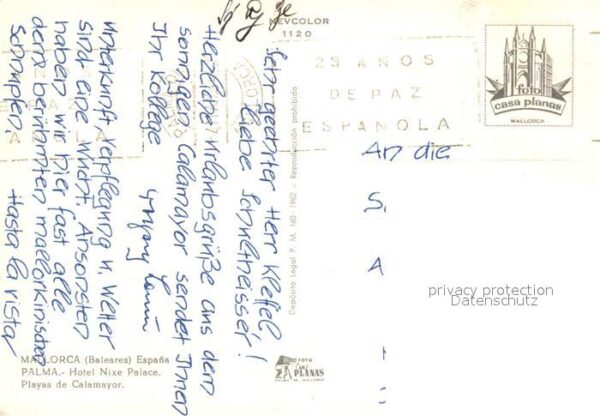 NEVCOLOR
1120
25 AÑOS
DE PAZ
ESPAÑOLA
foto
casa planas
MALLORCA
Sehr geehrter Herr Kleffel
Liebe Schultheisser!
Herzliche Urlaubsgrüße aus dem
sonnigen Calamayor sendet Ihnen
Ihr Kollege
Unterkunft, Verpflegung u. Wetter
sind eine Wucht. Ansonsten
haben wir hier fast alle
den berühmten mallorkinischen
Schnupfen.
Hasta la vista
An die
S
A
Depósito Legal P. M. 160 - 1962 - Reproducción prohibida
privacy protection
Datenschutz
MALLORCA (Baleares) España
PALMA.- Hotel Nixe Palace.
Playas de Calamayor.
FOTO
CASA
PLANAS
PALMA DE MALLORCA